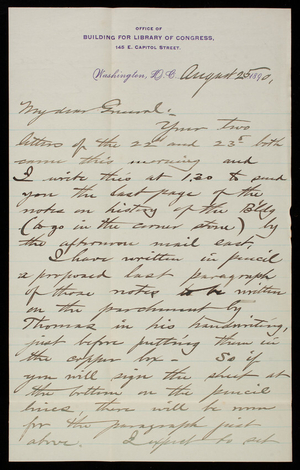 OFFICE OF
BUILDING FOR LIBRARY OF CONGRESS,
145 E. CAPITOL STREET.
Washington, D. C. August 25 1890,
My dear General:-
Your two
letters of the 22d and 23d both
came this morning and
I write this at 1.20 to send
you the last page of the
notes on history of the B'l'dg
(to go in the corner stone) by
the afternoon mail east,
I have written in pencil
a proposed last paragraph
of those notes to be written
on the parchment by
Thomas in his handwriting,
just before putting them in
the copper box - So if
you will sign the sheet at
the bottom on the pencil
lines, there will be room
for the paragraph just
above. I expect to set